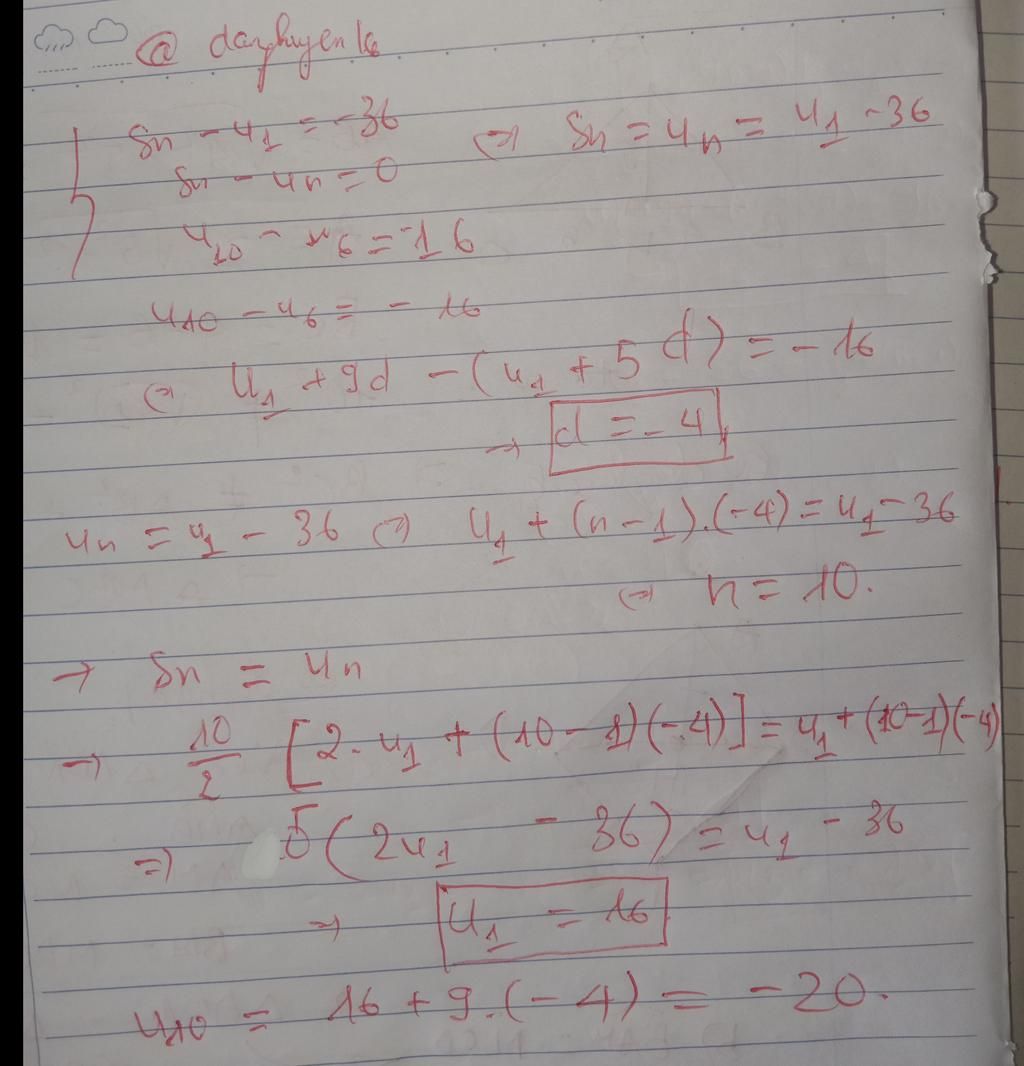 @ dazphuyenk6
Sn - u₁ = -36 ⇔ Sn = uₙ = u₁ - 36
Sn - uₙ = 0
u₁₀ - u₆ = -16
u₁₀ - u₆ = - 16
⇔ u₁ + 9d - (u₁ + 5d) = - 16
→ d = - 4
uₙ = u₁ - 36 ⇔ u₁ + (n - 1).(-4) = u₁ - 36
⇔ n = 10.
→ Sn = uₙ
→ 10/2 [2. u₁ + (10 - 1)(-4)] = u₁ + (10-1)(-4)
=> 5(2u₁ - 36) = u₁ - 36
→ u₁ = 16
u₁₀ = 16 + 9.(-4) = -20.